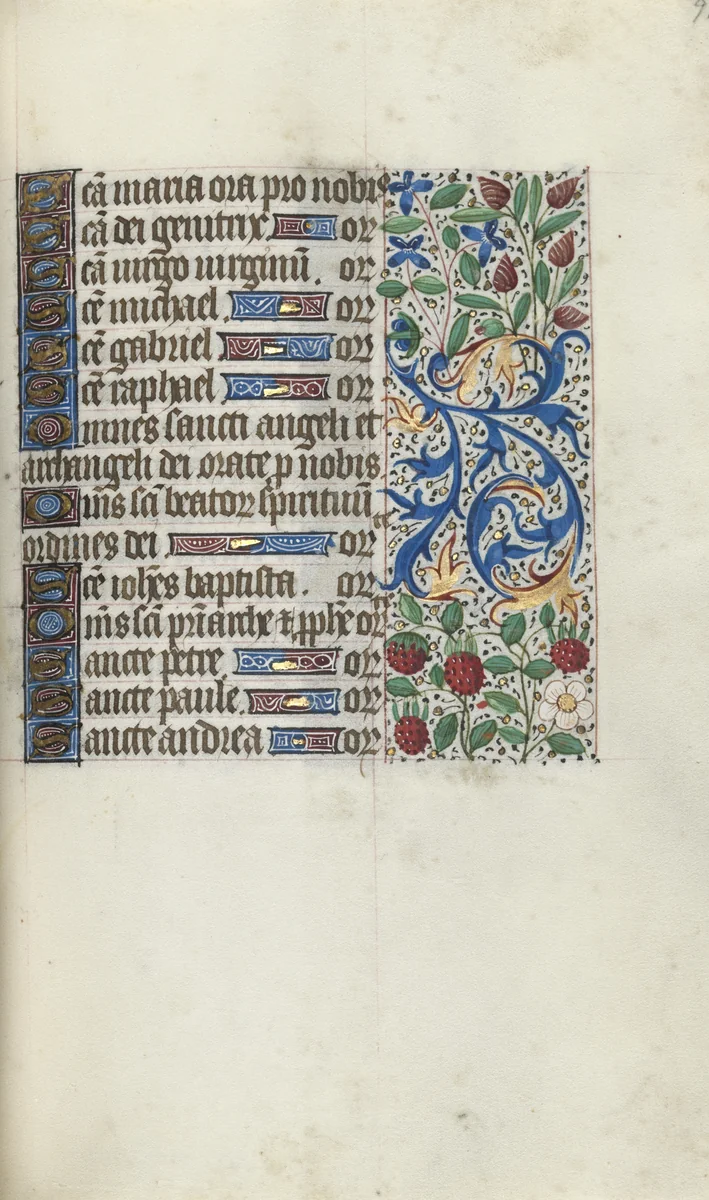 Scã maria ora pro nobis
Scã dei genitrix or
Scã uirgo uirginũ. or
Scẽ michael or
Scẽ gabriel or
Scẽ raphael or
Omnes sancti angeli et
archangeli dei orate p nobis
Om̃s scĩ beatoꝝ spirituũ
ordines dei or
Scẽ ioh̃es baptista. or
Om̃s scĩ pr̃iarche ⁊ ꝓph̃e or
Sancte petre or
Sancte paule or
Sancte andrea or